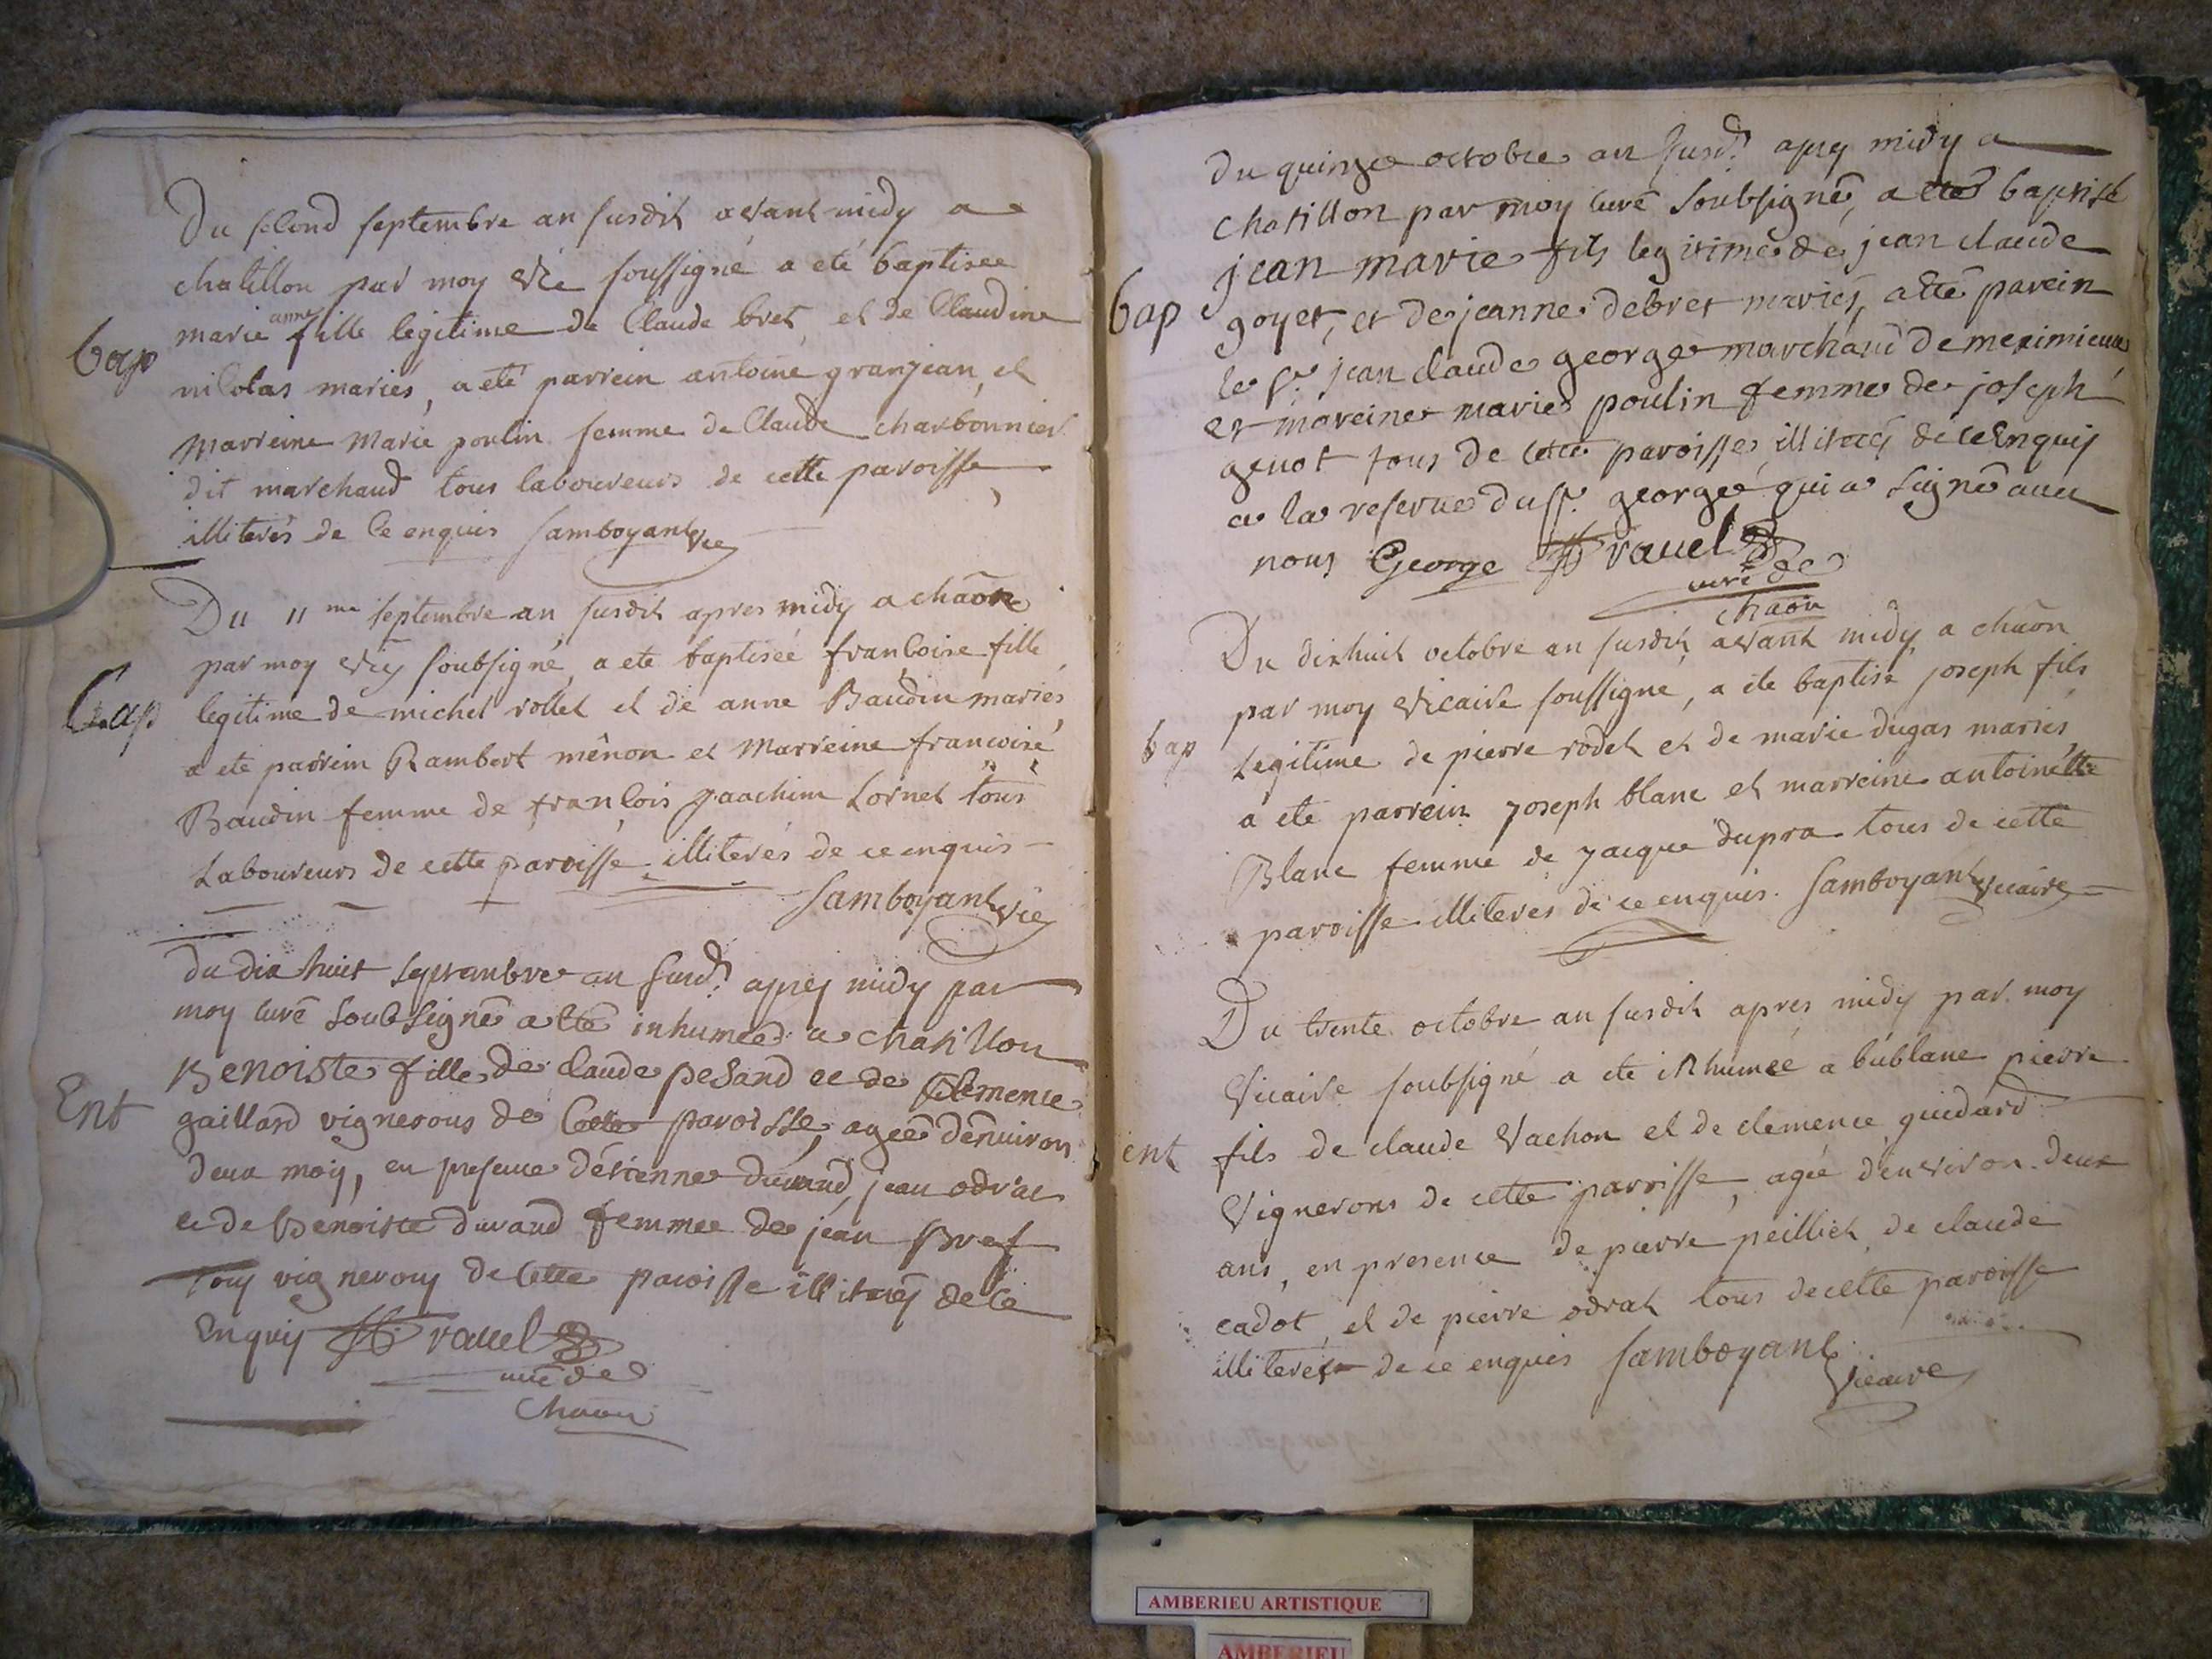 Du second septembre an susdit avant midy a
chatillon par moy vic soussigné a eté baptisee
bap
marie anne fille legitime de Claude bret et de Claudine
nicolas mariés, a eté parrein antoine granjean, et
Marreine Marie poulin femme de Claude charbonnier
dit marchand tous laboureurs de cette paroisse,
illiterés de ce enquis Samboyant vic
Du 11me septembre an susdit apres midy a chaôn
par moy vic soubsigné, a ete baptiseé françoise fille
bap
legitime de michel rollet et de anne Baudin mariés,
a ete parrein Rambert mênon et Marreine francoise
Baudin femme de françois joachim Cornet tous
Laboureurs de cette paroisse illiterés de ce enquis
Samboyant vic
du dix huit septambre an susd. apres midy par
moy curé soubsigné a eté inhumeé a chatillon
Benoiste fille de claude pesand et de Clemence
Ent
gaillard vignerons de Cette paroisse, ageé denuiron
deux mois, en presence détienne durand, jean odrat
et de Benoiste durand femme de jean Bret
tous vignerons de cette paroisse illiterés de ce
Enquis rauel
curé de
chaon
du quinze octobre an susd. apres midy a
chatillon par moy curé soubsigné, a eté baptisé
jean marie fils legitime de jean claude
bap
goyet, et de jeanne debret mariés, a eté parein
le sr. jean claude george marchand de meximieux,
et mareine marie poulin femme de joseph
genot tous de cette paroisse, illiterés de ce Enquis
a la reserue du sr. george qui a signé auec
nous George rauel
curé de
chaon
Du dixhuit octobre an susdit, avant midy, a chaôn
par moy vicaire soussigné, a ete baptisé joseph fils
bap
Legitime de pierre rodet et de marie dugas mariés,
a ete parrein joseph blanc et marreine antoinette
Blanc femme de jacque dupra tous de cette
paroisse illiterés de ce enquis. Samboyant vicaire
Du trente octobre an susdit apres midy par moy
Vicaire soubsigné a ete inhumeé a bublane pierre
ent
fils de claude Vachon et de clemence guidard
Vignerons de cette paroisse, ageé d'environ deux
ans, en presence de pierre peilliet, de claude
cadot, et de pierre odrat tous de cette paroisse
illiterés de ce enquis Samboyant
Vicaire
AMBERIEU ARTISTIQUE
AMBERIEU